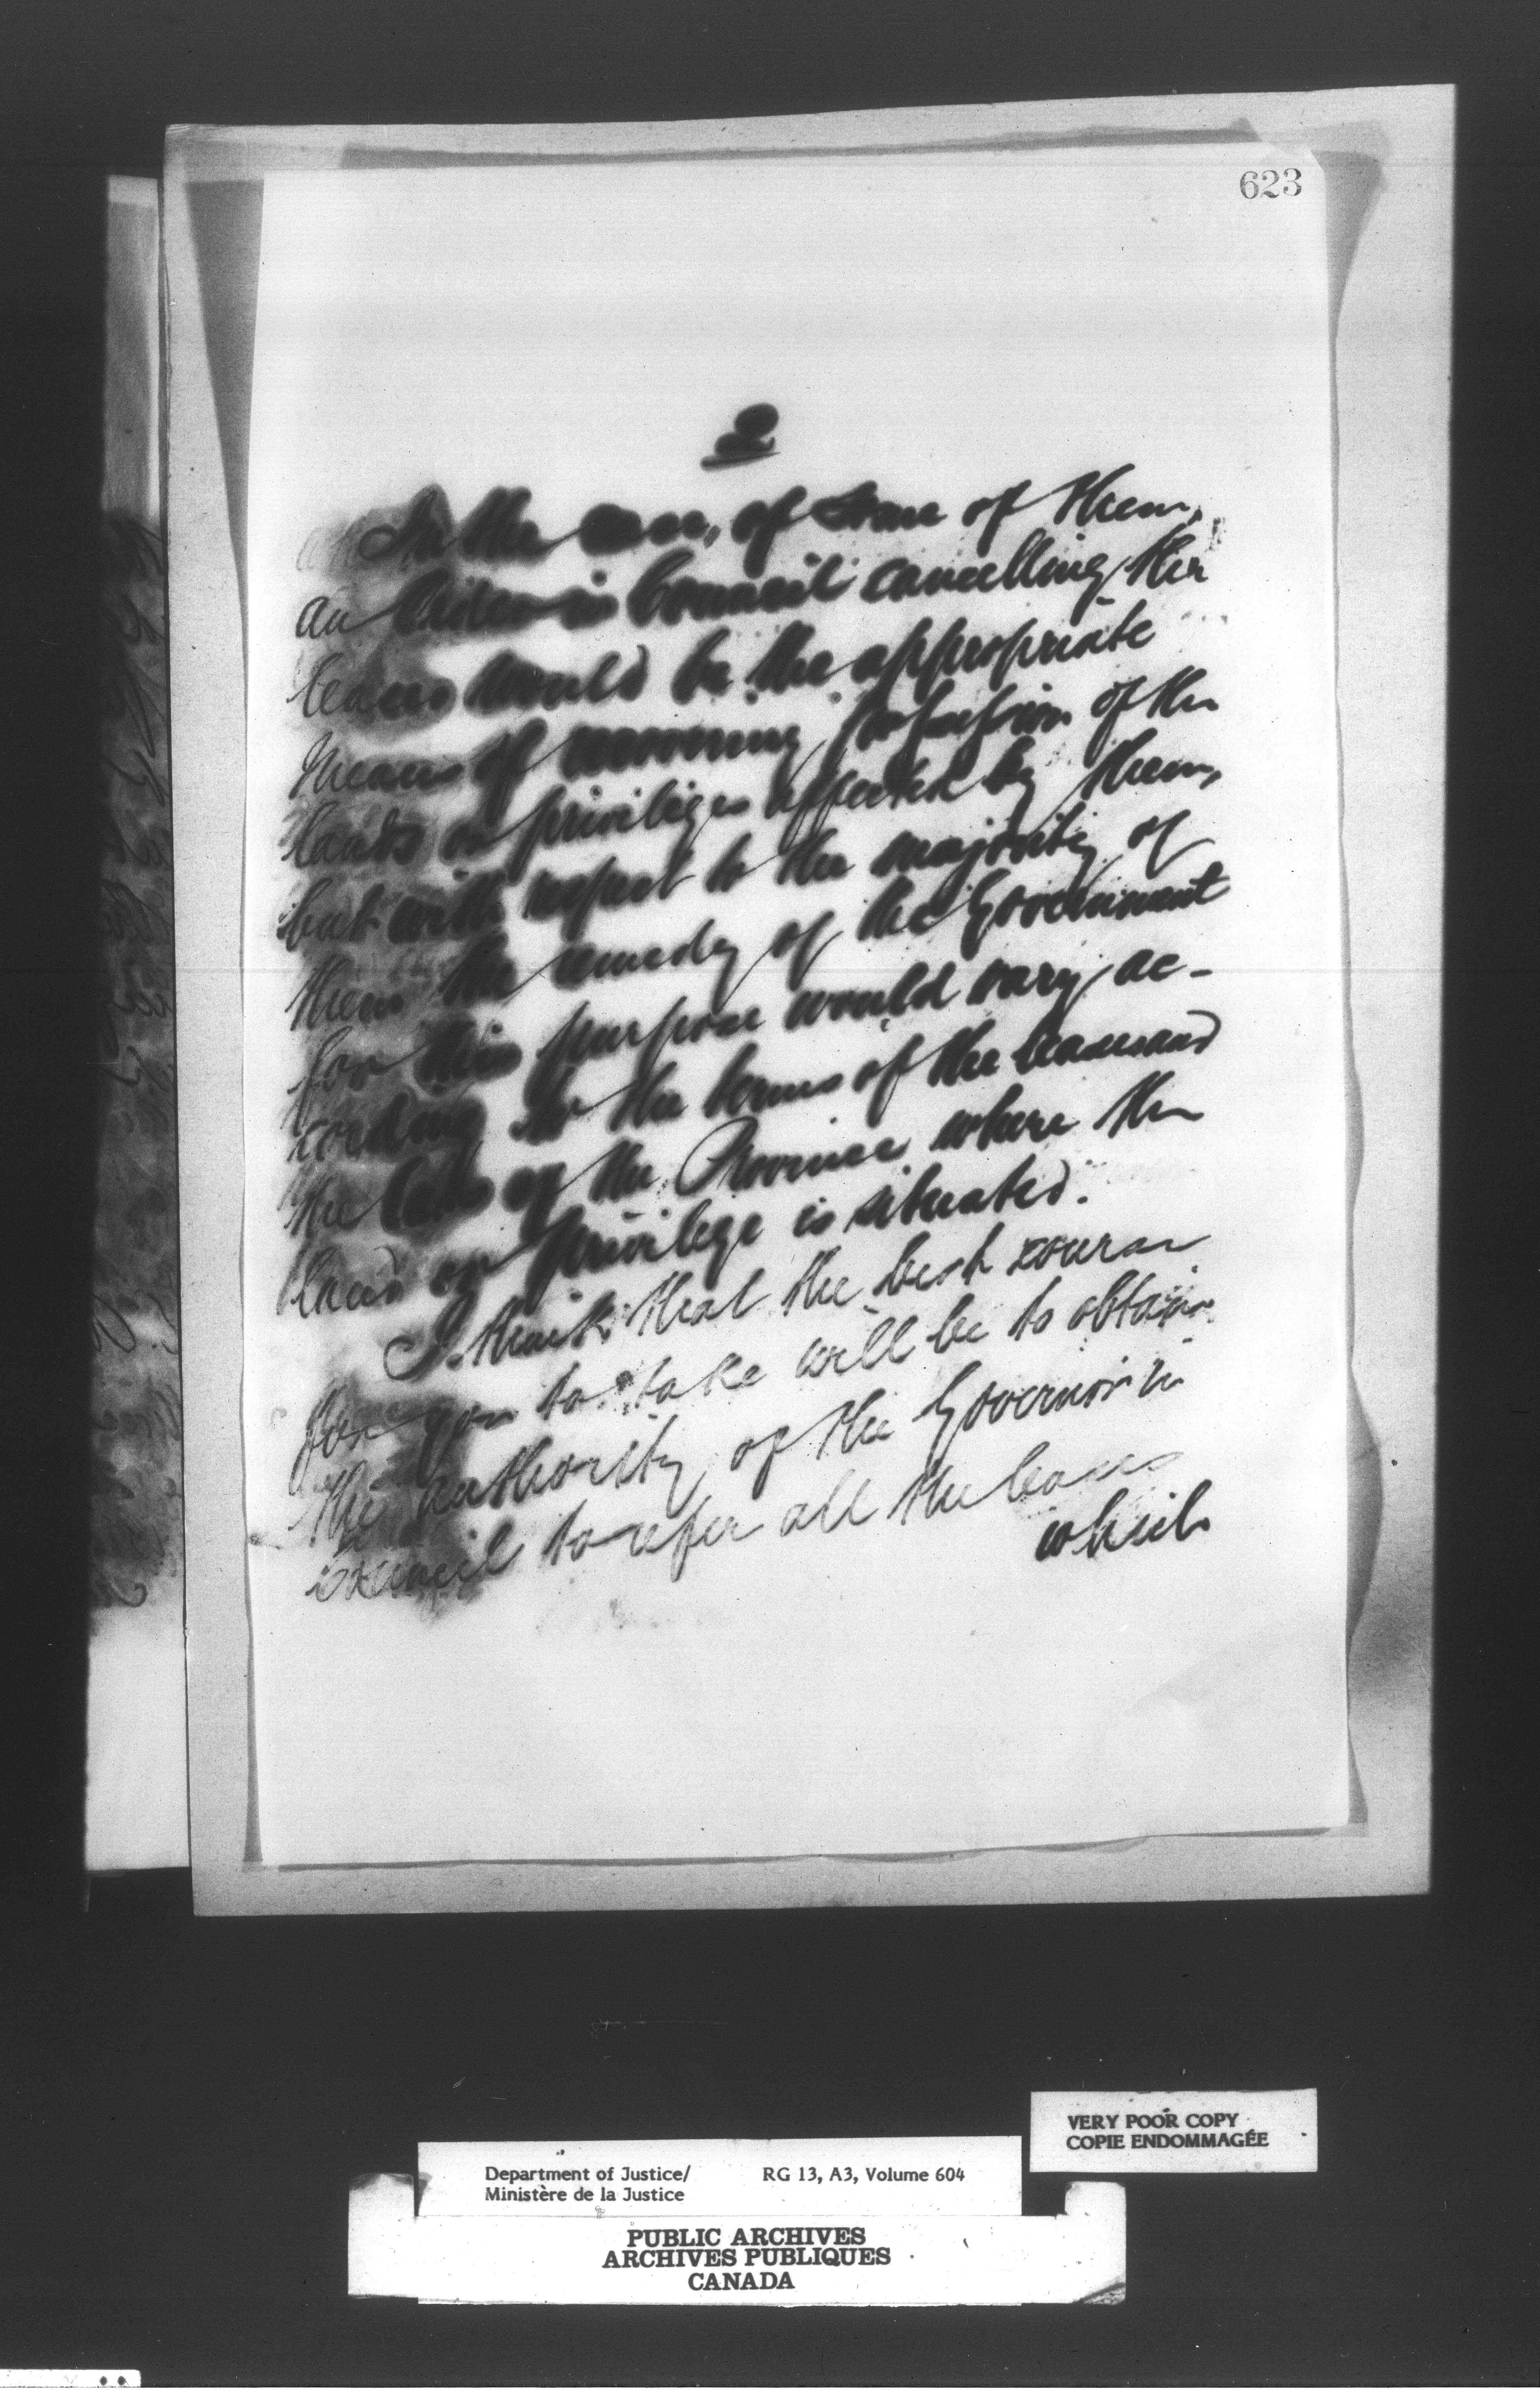 623
2
In the case, of some of them,
an Order in Council cancelling the
leases would be the appropriate
means of recovering possession of the
lands or privileges affected by them,
but with respect to the majority of
them the remedy of the Government
for this purpose would vary ac-
cording to the terms of the leases and
the laws of the Province where the
land or privilege is situated.
I think that the best course
for you to take will be to obtain
the authority of the Governor in
Council to refer all the leases
which
VERY POOR COPY
COPIE ENDOMMAGÉE
Department of Justice/ RG 13, A3, Volume 604
Ministère de la Justice
PUBLIC ARCHIVES
ARCHIVES PUBLIQUES
CANADA